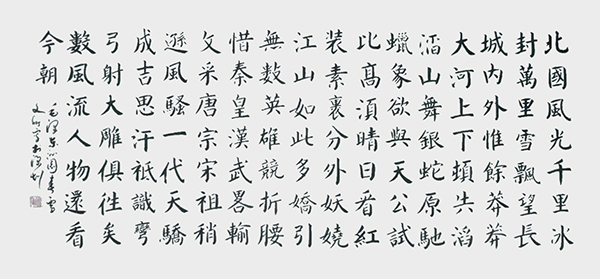 北國風光千里冰
封萬里雪飄望長
城內外惟餘莽莽
大河上下頓失滔
滔山舞銀蛇原馳
蠟象欲與天公試
比髙湏晴日看紅
裝素裹分外妖嬈
江山如此多嬌引
無數英雄競折腰
惜秦皇漢武畧輸
文采唐宗宋祖稍
遜風騷一代天驕
成吉思汗祗識彎
弓射大雕俱徃矣
數風流人物還看
今朝
毛澤東沁園春雪